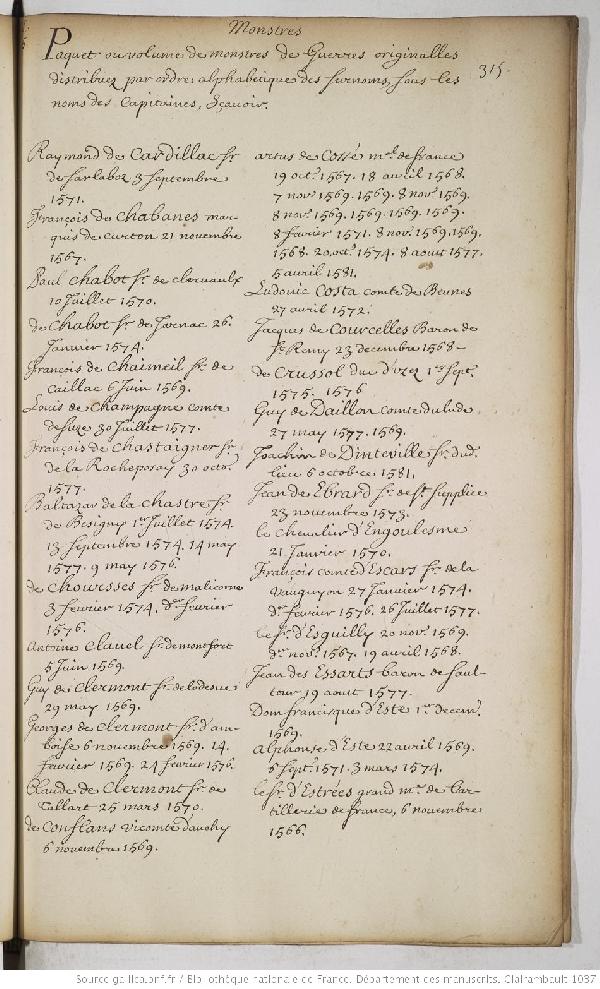 Monstres
Paquet ou volume de monstres de Guerres originalles
distribuez par ordre alphabetique des surnoms, sous les
noms des Capitaines, sçavoir.
315.
Raymond de Cardillac sr
de Sarlaboz 3 septembre
1571.
François de Chabanes mar-
quis de Curton 21 novembre
1567.
Paul Chabot sr. de Clervaulx
10 Juillet 1570.
de Chabot sr. de Jarnac 26.
Janvier 1574.
François de Chaimeil sr. de
Caillac 6 Juin 1569.
Louis de Champagne comte
de Suze 30 Juillet 1577.
François de Chastaigner sr.
de la Rocheposay 30 octo.
1577.
Baltazar de la Chastre sr.
de Besigny 1er Juillet 1574.
13 Septembre 1574. 14 may
1577. 9 may 1576.
de Chourses sr. de malicorne
3 fevrier 1574. dr. fevrier
1576.
Antoine Clauel sr. de montfort
5 Juin 1569.
Guy de Clermont sr. de
29 may 1569.
Georges de Clermont sr. d'am-
boise 6 novembre 1569. 14.
fevrier 1569. 24 fevrier 1576.
Claude de Clermont sr. de
Tallart 25 mars 1570.
de Conflans vicomte d'auchy
6 novembre 1569.
artus de Cossé mal. de france
19 octo. 1567. 18 avril 1568.
7 nov. 1569. 1569. 8 nov. 1569.
8 nov. 1569. 1569. 1569. 1569.
8 fevrier 1571. 8 nov. 1569. 1569.
1568. 20 oct. 1574. 8 aoust 1577.
5 avril 1581.
Ludovic Costa comte de Beunes
27 avril 1572.
Jacques de Courcelles Baron de
St. Remy 23 decembre 1568-
de Crussol duc d'uzez 1er sept.
1575. 1576
Guy de Daillon comte du lude
27 may 1577. 1569.
Joachin de Dinteville sr. dud.
lieu 6 octobre 1581.
Jean de Ebrard sr. de st. supplice
23 novembre 1573.
le chevalier d'Engoulesme
21 Janvier 1570.
François comte d'Escars sr. de la
Vauguyon 27 Janvier 1574.
dr. fevrier 1576. 26 Juillet 1577.
le sr. d'Esguilly 20 nov. 1569.
dr. nov. 1567. 19 avril 1568.
Jean des Essarts baron de saul-
tour 19 aoust 1577.
Dom francisque d'Este 1er decem.
1569.
Alphonse d'Este 22 avril 1569.
5 sept. 1571. 3 mars 1574.
le sr. d'Estrées grand me. de l'ar-
tillerie de france, 6 novembre
1566.
Source gallica.bnf.fr / Bibliothèque nationale de France. Département des manuscrits. Clairambault 1037